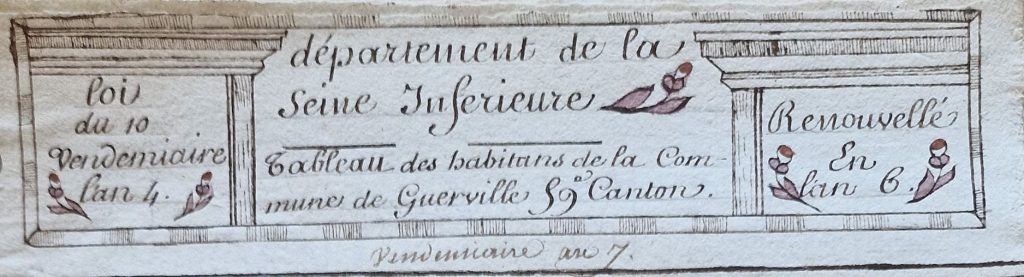 loi
du 10
Vendemiaire
lan 4.
département de la
Seine Inferieure
Tableau des habitans de la Com-
mune de Guerville Canton.
Renouvellé
En
lan 6.
Vendemiaire an 7.